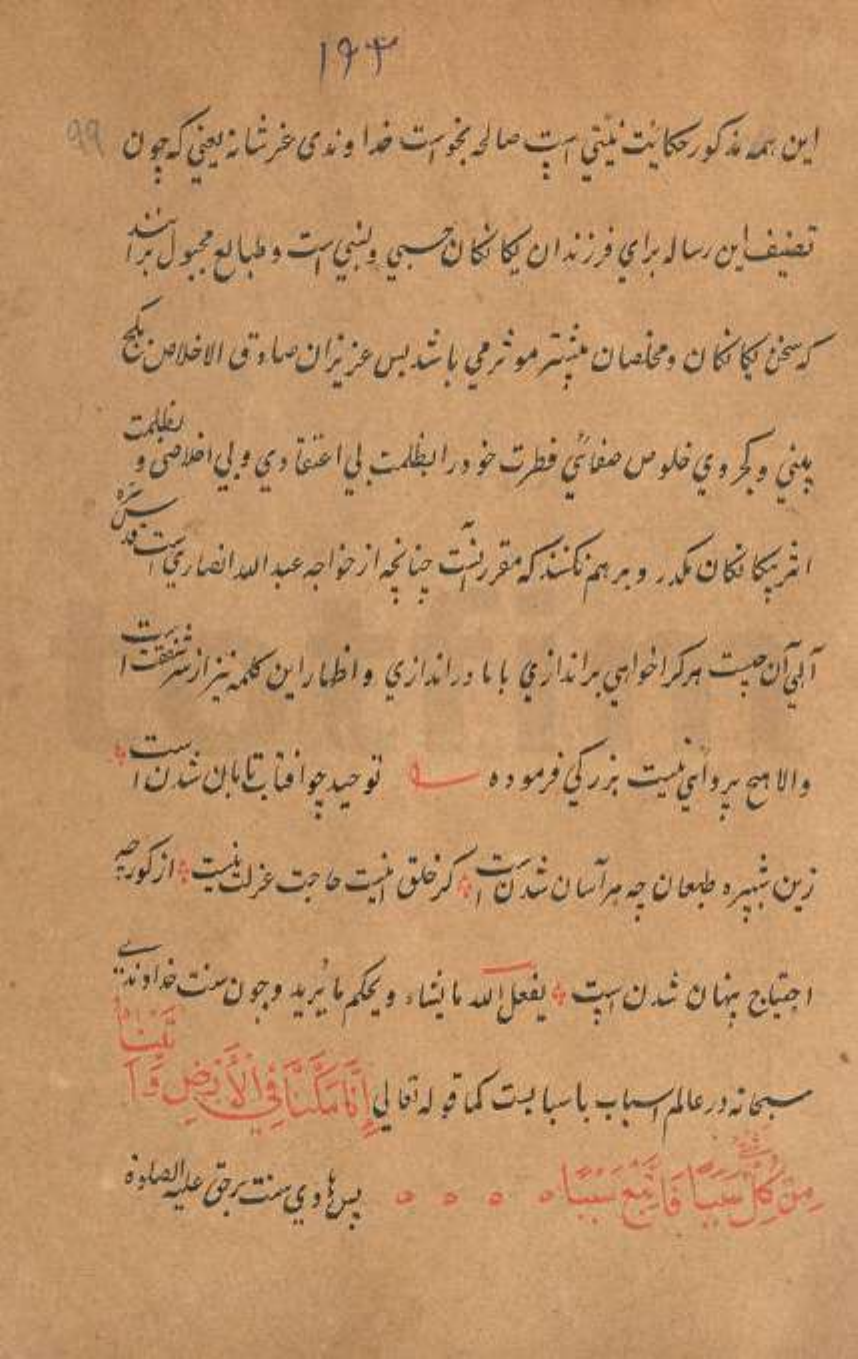 ۱۹۳
99
این همه مذکور حکایت نیتی است صالحه بخواست خداوندی عزشانه یعنی که چون
تصنیف این رساله برای فرزندان یکانکان حسبی ونسبی است و طبایع مجبول براینند
که سخن یکانکان ومخلصان بیشتر موثر می باشد بس عزیزان صادق الاخلاص بکج
بینی و کجروی خلوص صفائی فطرت خودرا بظلمت بی اعتقادی و بی اخلاصی و بظلمت
اثر بیکانکان مکدر و برهم نکنند که مقرر است چنانچه از خواجه عبدالله انصاری است قدس سره
آلهی آن چیست هرکرا خواهی براندازی باما دراندازی و اظهار این کلمه نیز از سر شفقت است
والا هیچ پروائی نیست بزرکی فرموده توحید چو افتاب تابان شدن است
زین شپره طبعان چه هراسان شدن است کر خلق اینست حاجت عزلت نیست از کور چه
احتیاج پنهان شدن است یفعل الله مایشاء ویحکم ما یُرید وچون سنت خداوندی
سبحانه در عالم اسباب باسبابست کما قوله تعالی إِنَّا مَكَّنَّا فِي الْأَرْضِ وَآتَيْنَاهُ
مِنْ كُلِّ شَيْءٍ سَبَبًا فَاتَّبَعَ سَبَبًا ه ه ه ه ه پس هادی سنت برحق علیه الصلوة